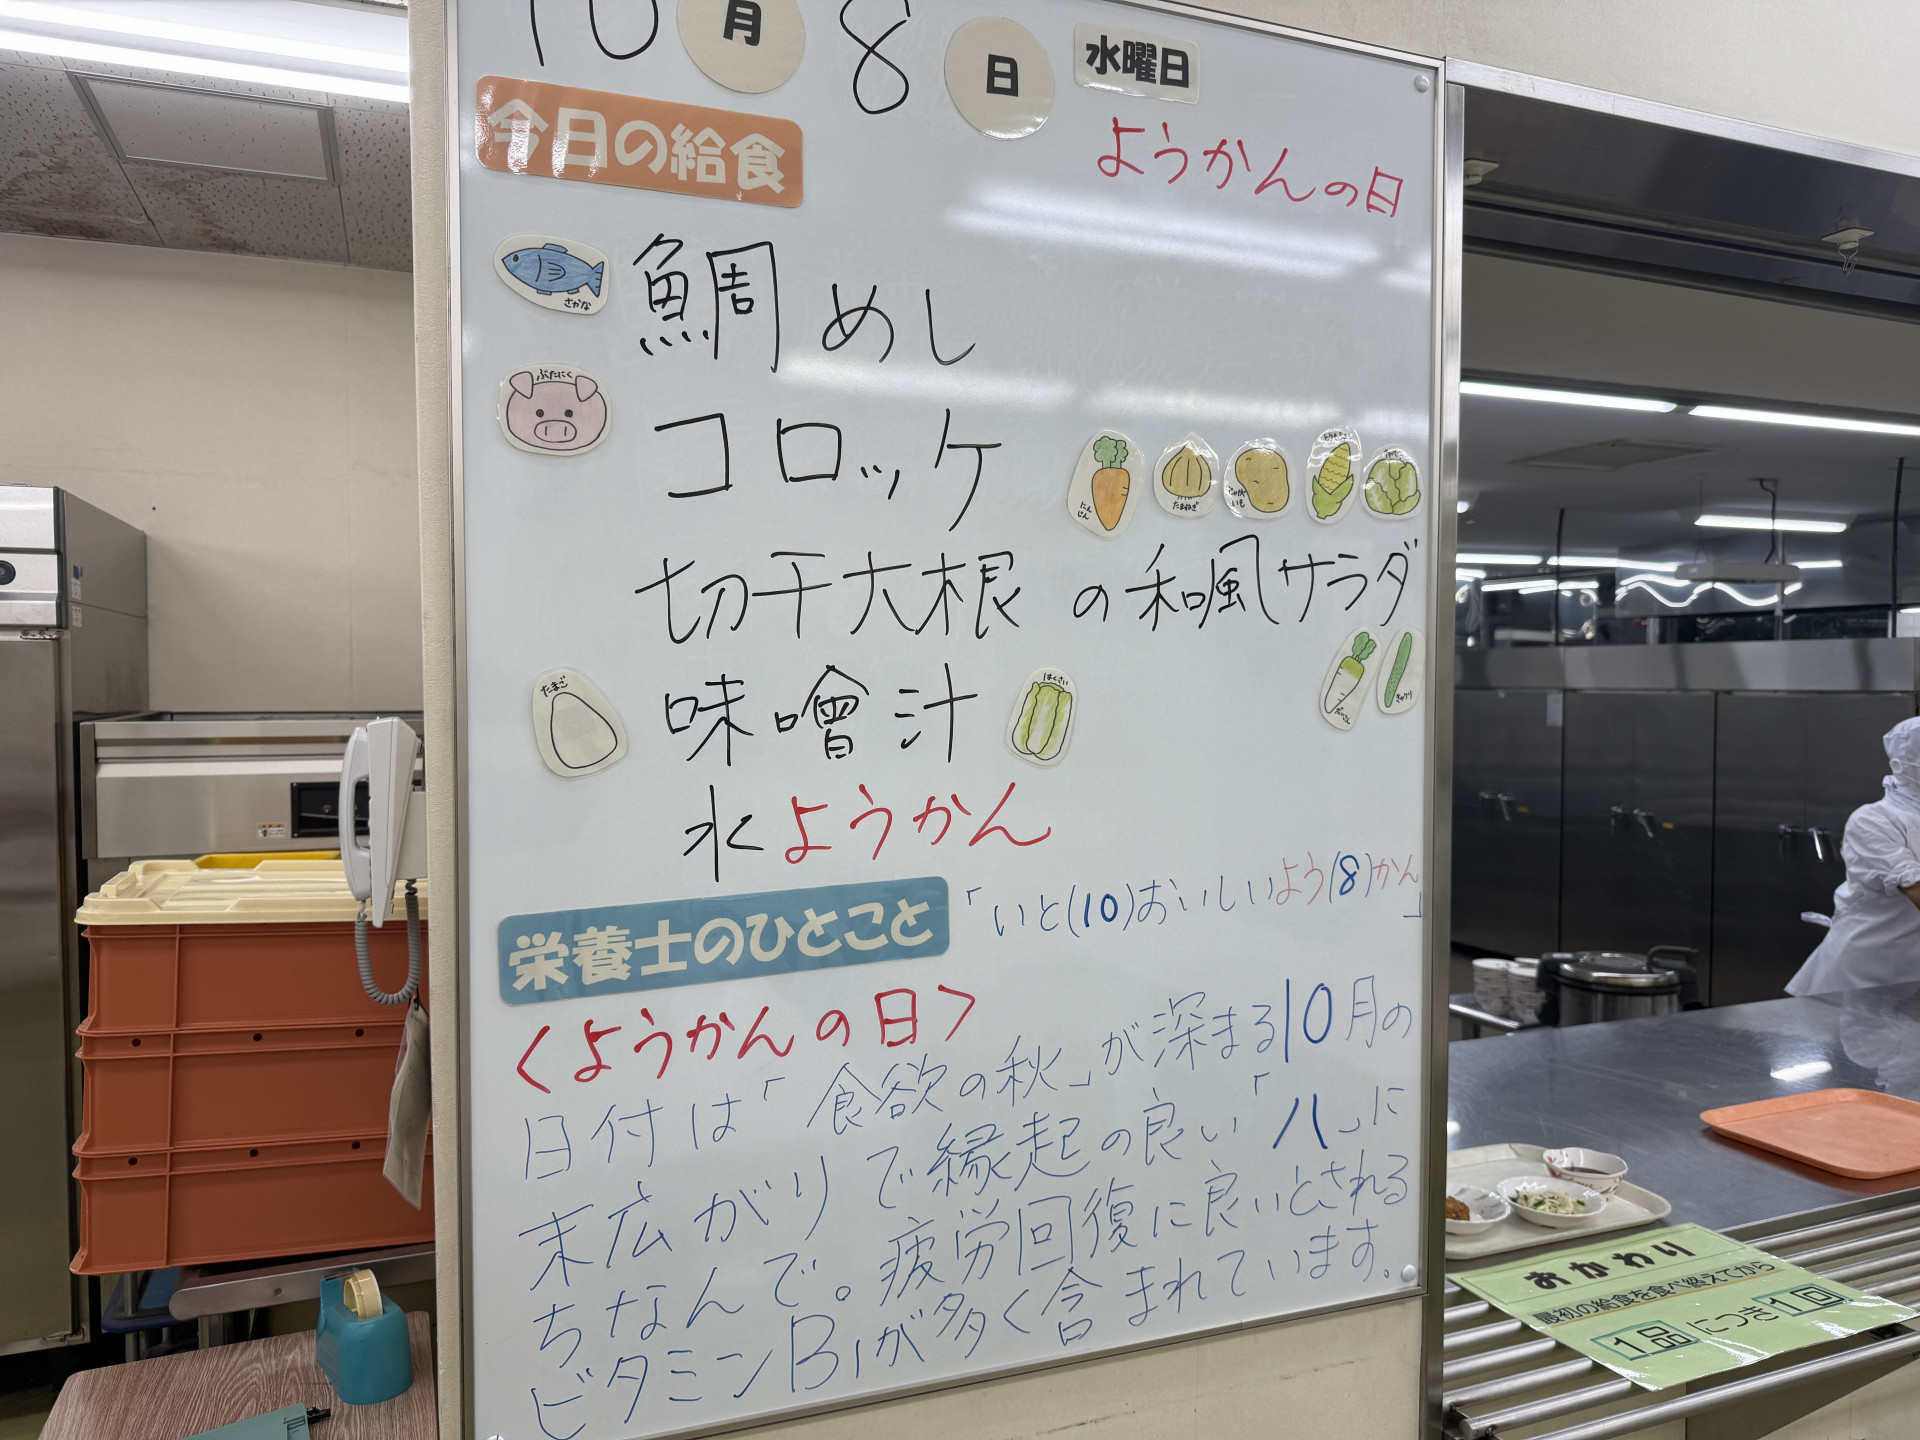 10月8日 水曜日
今日の給食
ようかんの日
さかな
鯛めし
ぶたにく
コロッケ
にんじん
たまねぎ
じゃがいも
切干大根の和風サラダ
だいこん
きゅうり
たまご
味噌汁
はくさい
水ようかん
栄養士のひとこと
「いと(10)おいしいよう(8)かん」
<ようかんの日>
日付は「食欲の秋」が深まる10月の
末広がりで縁起の良い「八」に
ちなんで。疲労回復に良いとされる
ビタミンB1が多く含まれています。
おかわり
最初の給食を食べ終えてから
1品につき1回